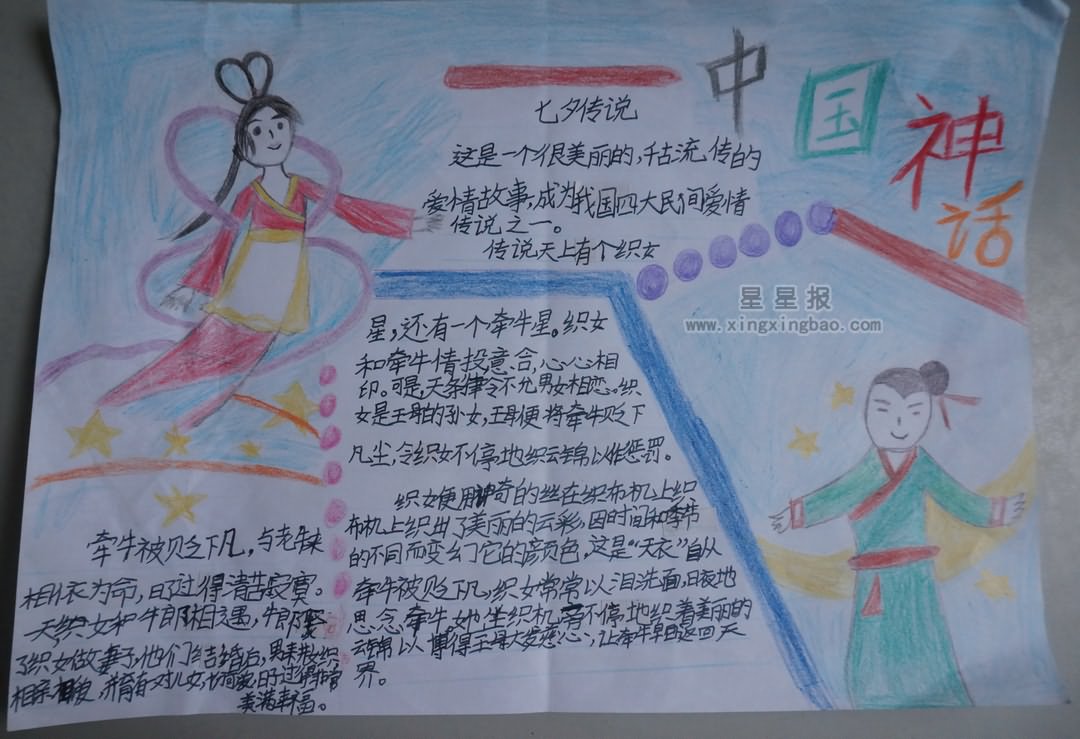 中国神话
七夕传说
这是一个很美丽的,千古流传的
爱情故事,成为我国四大民间爱情
传说之一。
传说天上有个织女
星,还有一个牵牛星。织女
和牵牛情投意合,心心相
印。可是,天条律令不允男女相恋。织
女是王母的孙女,王母便将牵牛贬下
凡尘,令织女不停地织云锦以作惩罚。
织女便用神奇的丝在织布机上织
布机上织出了美丽的云彩,因时间和季节
的不同而变幻它的颜色,这是“天衣”自从
牵牛被贬下凡,织女常常以泪洗面,日夜地
思念牵牛她坐织机旁不停地织着美丽的
云锦以博得王母大发慈心,让牵牛早日返回天
界。
牵牛被贬下凡,与老牛
相依为命,日过得清苦寂寞。
一天织女和牛郎相遇,牛郎娶
了织女做妻子,他们结婚后,男耕女织
相亲相爱,并育有一对儿女,日子过得非常
美满幸福。
星星报
www.xingxingbao.com